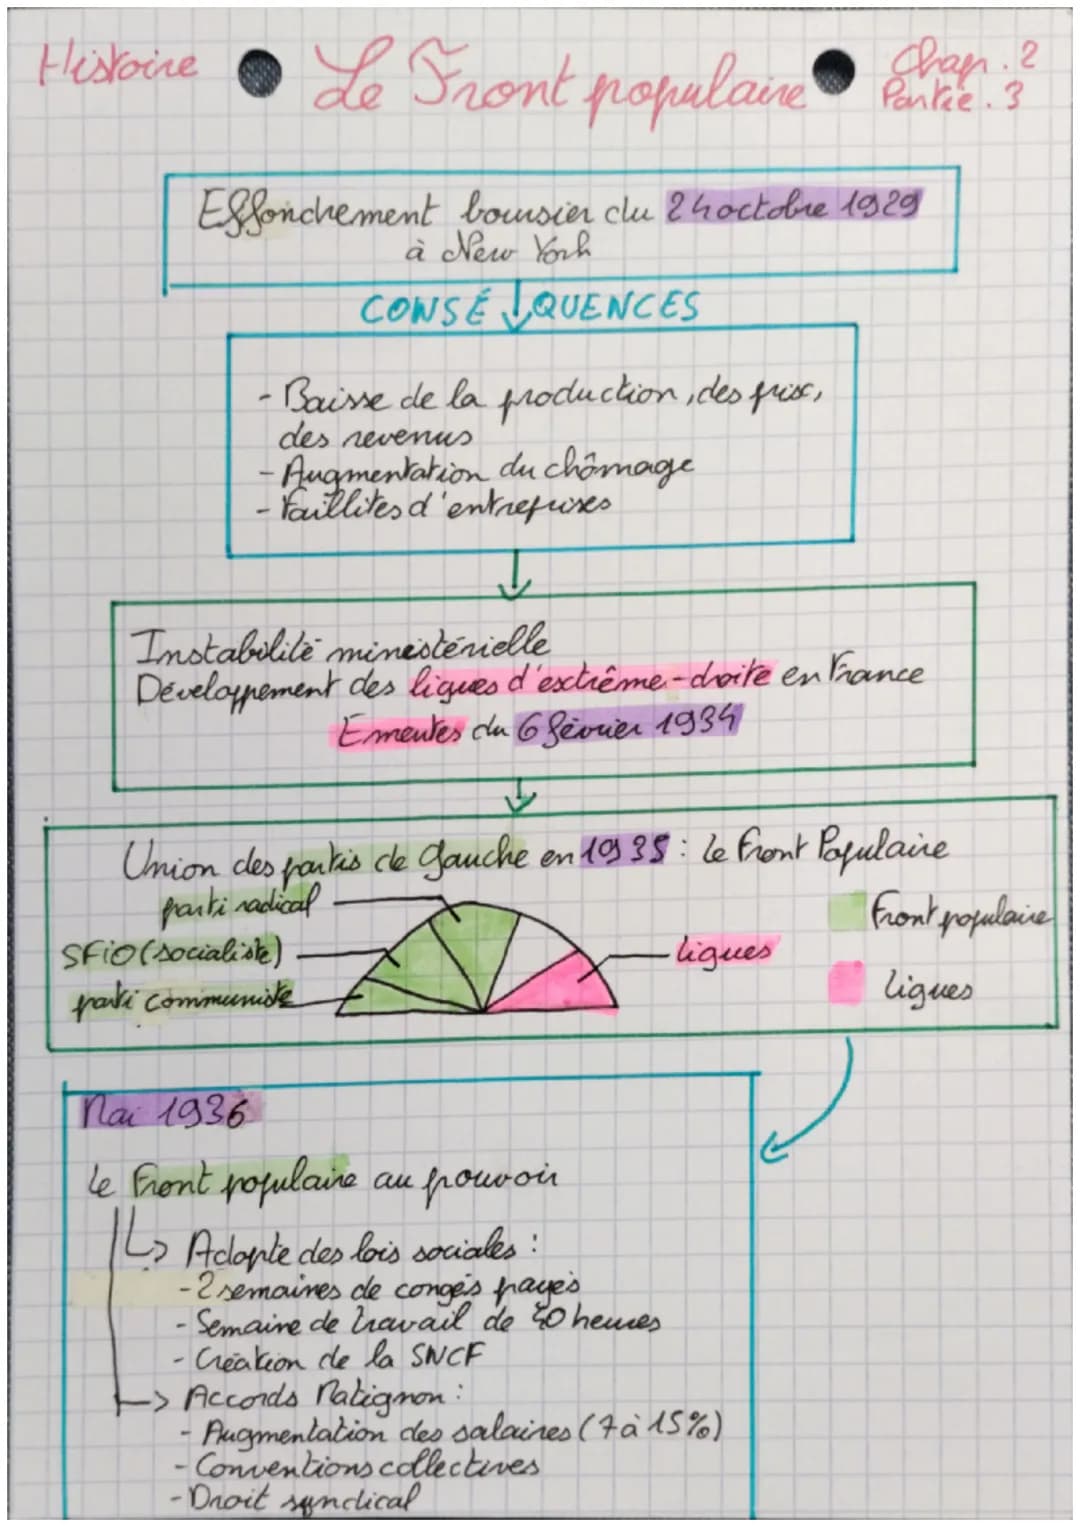 Histoire
Le Front populaire
Chap. 2
Partie. 3
Effondrement boursier du 24 octobre 1929
à New York
CONSÉQUENCES
- Baisse de la production, des prix,
des revenus
- Augmentation du chômage
- Faillites d'entreprises
Instabilité ministérielle
Développement des ligues d'extrême-droite en France
Emeutes du 6 février 1934
Union des partis de gauche en 1935 : Le Front Populaire
parti radical
SFiO (socialiste)
parti communiste
ligues
Front populaire
Ligues
Mai 1936
Le Front populaire au pouvoir
Adopte des lois sociales :
- 2 semaines de congés payés
- Semaine de travail de 40 heures
- Création de la SNCF
Accords Matignon :
- Augmentation des salaires (7 à 15%)
- Conventions collectives
- Droit syndical